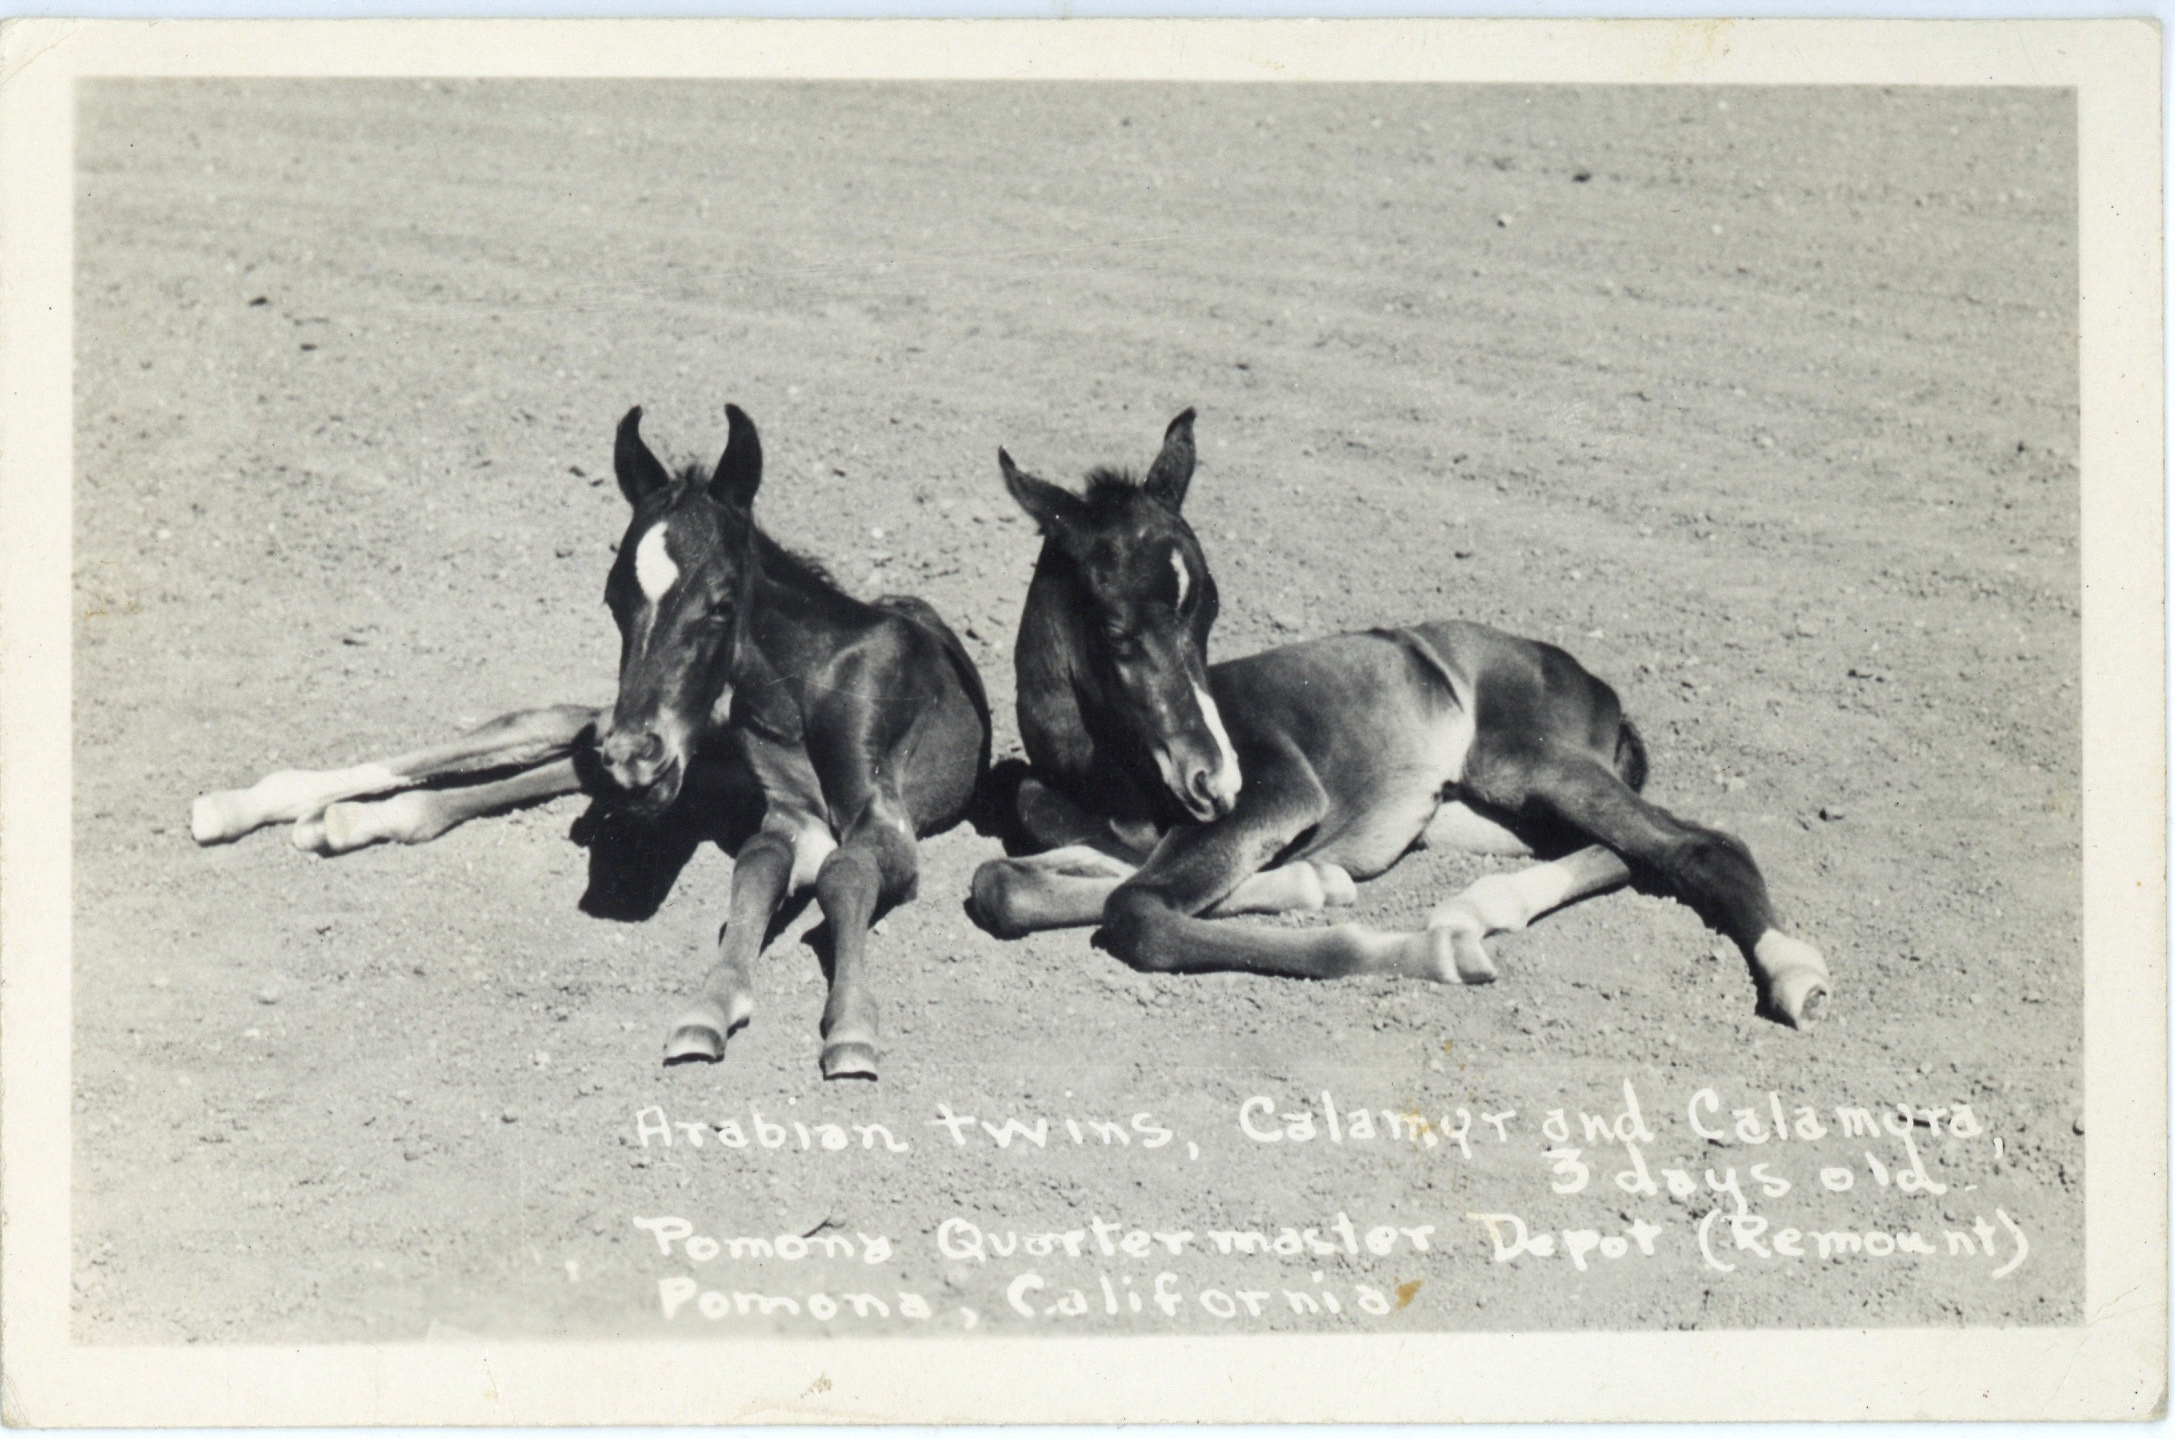 Arabian twins, Calamyr and Calamyra,
3 days old.
Pomona Quartermaster Depot (Remount)
Pomona, California